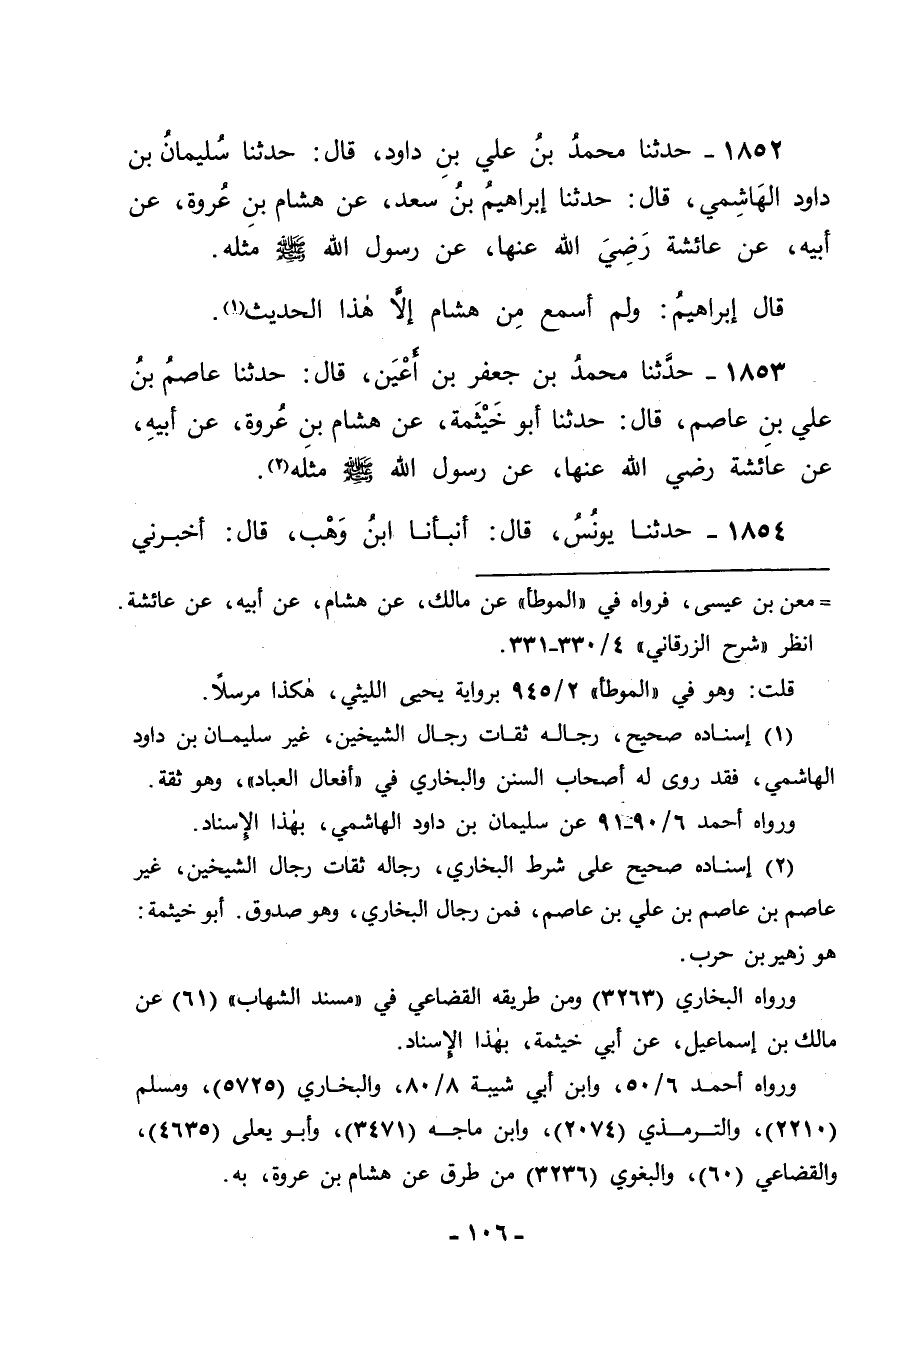 ١٨٥٢ ـ حدثنا محمدُ بنُ علي بنِ داود، قال: حدثنا سُليمانُ بن
داود الهَاشِمي، قال: حدثنا إبراهيمُ بنُ سعد، عن هشام بنِ عُروة، عن
أبيه، عن عائشة رَضِيَ الله عنها، عن رسول الله ﷺ مثله.
قال إبراهيمُ: ولم أسمع مِن هشام إلَّا هٰذا الحديث(١).
١٨٥٣ ـ حدَّثنا محمدُ بن جعفر بن أَعْيَن، قال: حدثنا عاصمُ بنُ
علي بنِ عاصم، قال: حدثنا أبو خَيْثَمة، عن هشام بنِ عُروة، عن أبيهِ،
عن عائشة رضي الله عنها، عن رسول الله ﷺ مثله(٢).
١٨٥٤ ـ حدثنـا يونُسُ، قال: أنبـأنـا ابنُ وَهْب، قال: أخبـرني
= معن بن عيسى، فرواه في «الموطأ» عن مالك، عن هشام، عن أبيه، عن عائشة.
انظر «شرح الزرقاني» ٤/ ٣٣٠-٣٣١.
قلت: وهو في «الموطأ» ٩٤٥/٢ برواية يحيى الليثي، هٰكذا مرسلاً.
(١) إسنـاده صحيح، رجـالـه ثقـات رجـال الشيخين، غير سليمـان بن داود
الهاشمي، فقد روى له أصحاب السنن والبخاري في «أفعال العباد»، وهو ثقة.
ورواه أحمد ٦/ ٩٠-٩١ عن سليمان بن داود الهاشمي، بهٰذا الإِسناد.
(٢) إسنـاده صحيح على شرط البخاري، رجاله ثقات رجال الشيخين، غير
عاصم بن عاصم بن علي بن عاصم، فمن رجال البخاري، وهو صدوق. أبو خيثمة:
هو زهير بن حرب.
ورواه البخاري (٣٢٦٣) ومن طريقه القضاعي في «مسند الشهاب» (٦١) عن
مالك بن إسماعيل، عن أبي خيثمة، بهٰذا الإِسناد.
ورواه أحمـد ٥٠/٦، وابن أبي شيبـة ٨٠/٨، والبخـاري (٥٧٢٥)، ومسلم
(٢٢١٠)، والتـرمـذي (٢٠٧٤)، وابن ماجـه (٣٤٧١)، وأبـو يعلى (٤٦٣٥)،
والقضاعي (٦٠)، والبغوي (٣٢٣٦) من طرق عن هشام بن عروة، به.
ـ ١٠٦ ـ